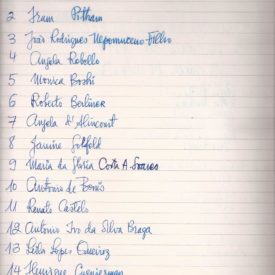 2 Fram Pitham
3 João Rodrigues Nepomuceno Filho
4 Angela Rabello
5 Monica Boshi
6 Roberto Berliner
7 Angela d'Alincourt
8 Janine
9 Maria da Glória Costa A. Soares
10 Antonio de Bonis
11 Renato Castelo
12 Antonio Ivo da Silva Braga
13 Leila Lopes Queiroz
14 Henrique